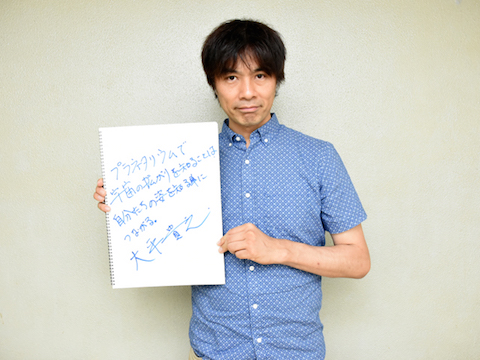 プラネタリウムで
宇宙の拡がりを知ることは
自分たちの姿を知る事に
つながる。
大平貴之